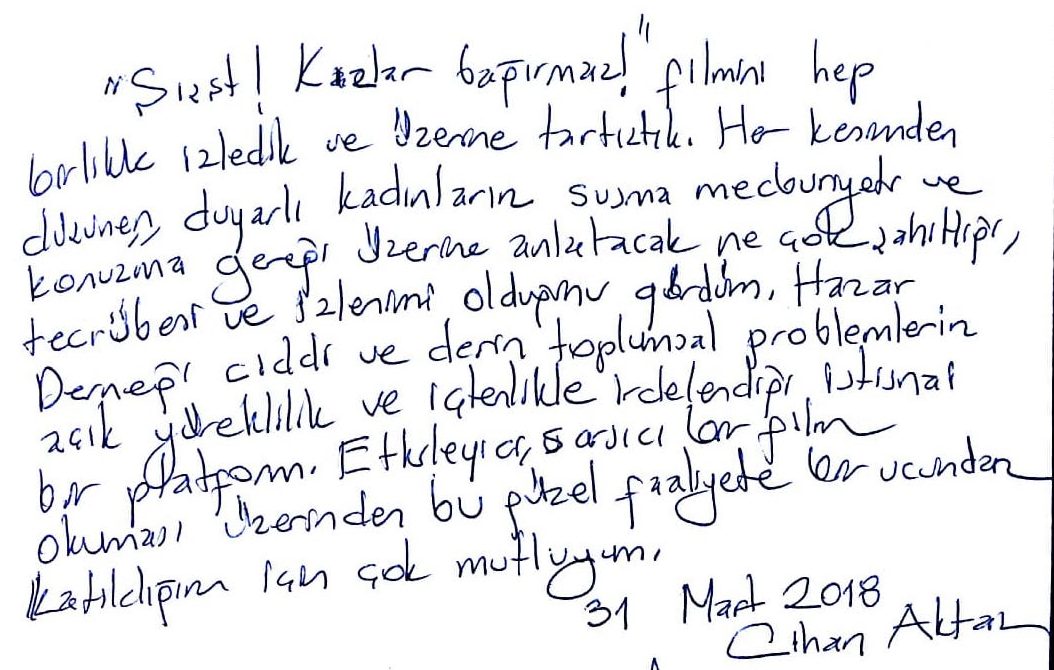 "Şışşt! Kızlar bağırmaz!" filmini hep
birlikte izledik ve üzerine tartıştık. Her kesimden
düşünen, duyarlı kadınların susma mecburiyeti ve
konuşma gereği üzerine anlatacak ne çok şahitliği,
tecrübesi ve izlenimi olduğunu gördüm. Hazar
Derneği ciddi ve derin toplumsal problemlerin
açık yüreklilik ve içtenlikle irdelendiği istisnai
bir platform. Etkileyici, sarsıcı bir film
okuması üzerinden bu güzel faaliyete bir ucundan
katıldığım için çok mutluyum.
31 Mart 2018
Cihan Aktaş